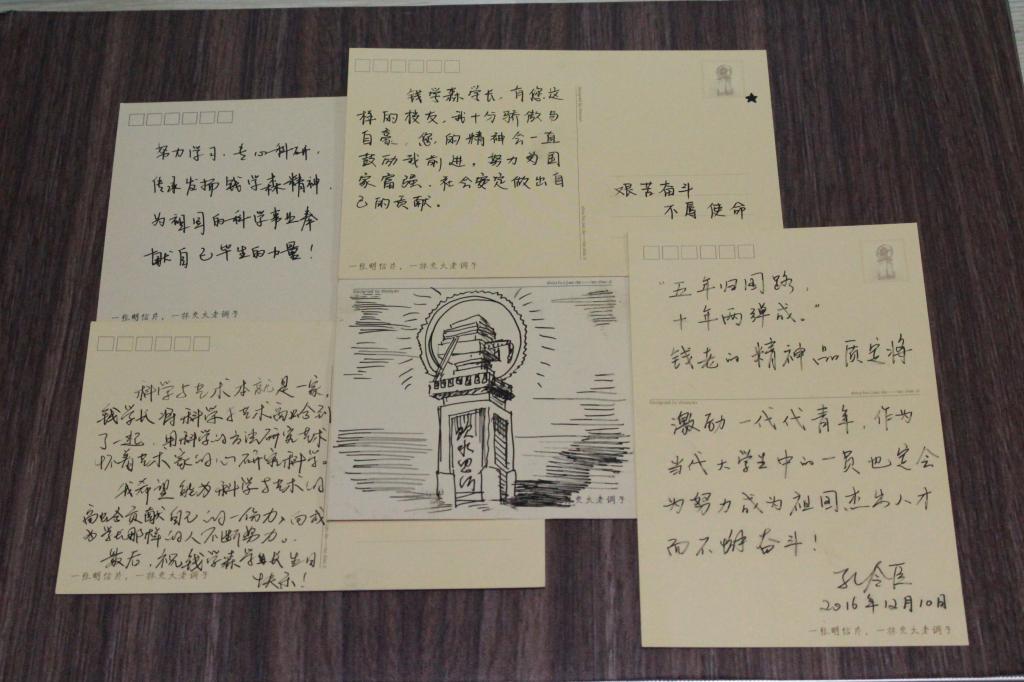 努力学习，专心科研，
传承发扬钱学森精神，
为祖国的科学事业奉
献自己毕生的力量！
一张明信片，一抹交大老调子
钱学森学长，有您这
样的校友，我十分骄傲与
自豪，您的精神会一直
鼓励我前进，努力为国
家富强、社会安定做出自
己的贡献。
艰苦奋斗
不辱使命
一张明信片，一抹交大老调子
科学与艺术本就是一家，
钱学长将科学与艺术融合到
了一起，用科学的方法研究艺术
怀着艺术家的心研究科学。
我希望能为科学与艺术的
融合贡献自己的一份力，向成
为学长那样的人不断努力。
最后，祝钱学森学长生日
快乐！
一张明信片，一抹交大老调子
饮水思源
抹交大老调子
“五年归国路，
十年两弹成。”
钱老的精神品质定将
激励一代代青年，作为
当代大学生中的一员也定会
为努力成为祖国杰出人才
而不懈奋斗！
孔令臣
2016年12月10日
一张明信片，一抹交大老调子